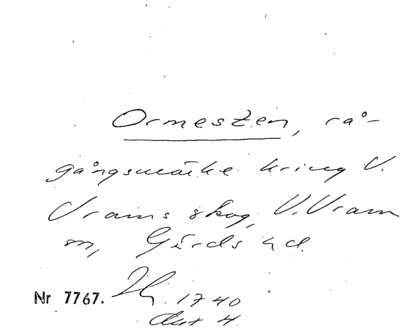 Ormesten, rå-
gångsmärke kring V.
Vrams skog, V. Vram
sn, Gärds hd.
Nr 7767. 1740
Akt 4